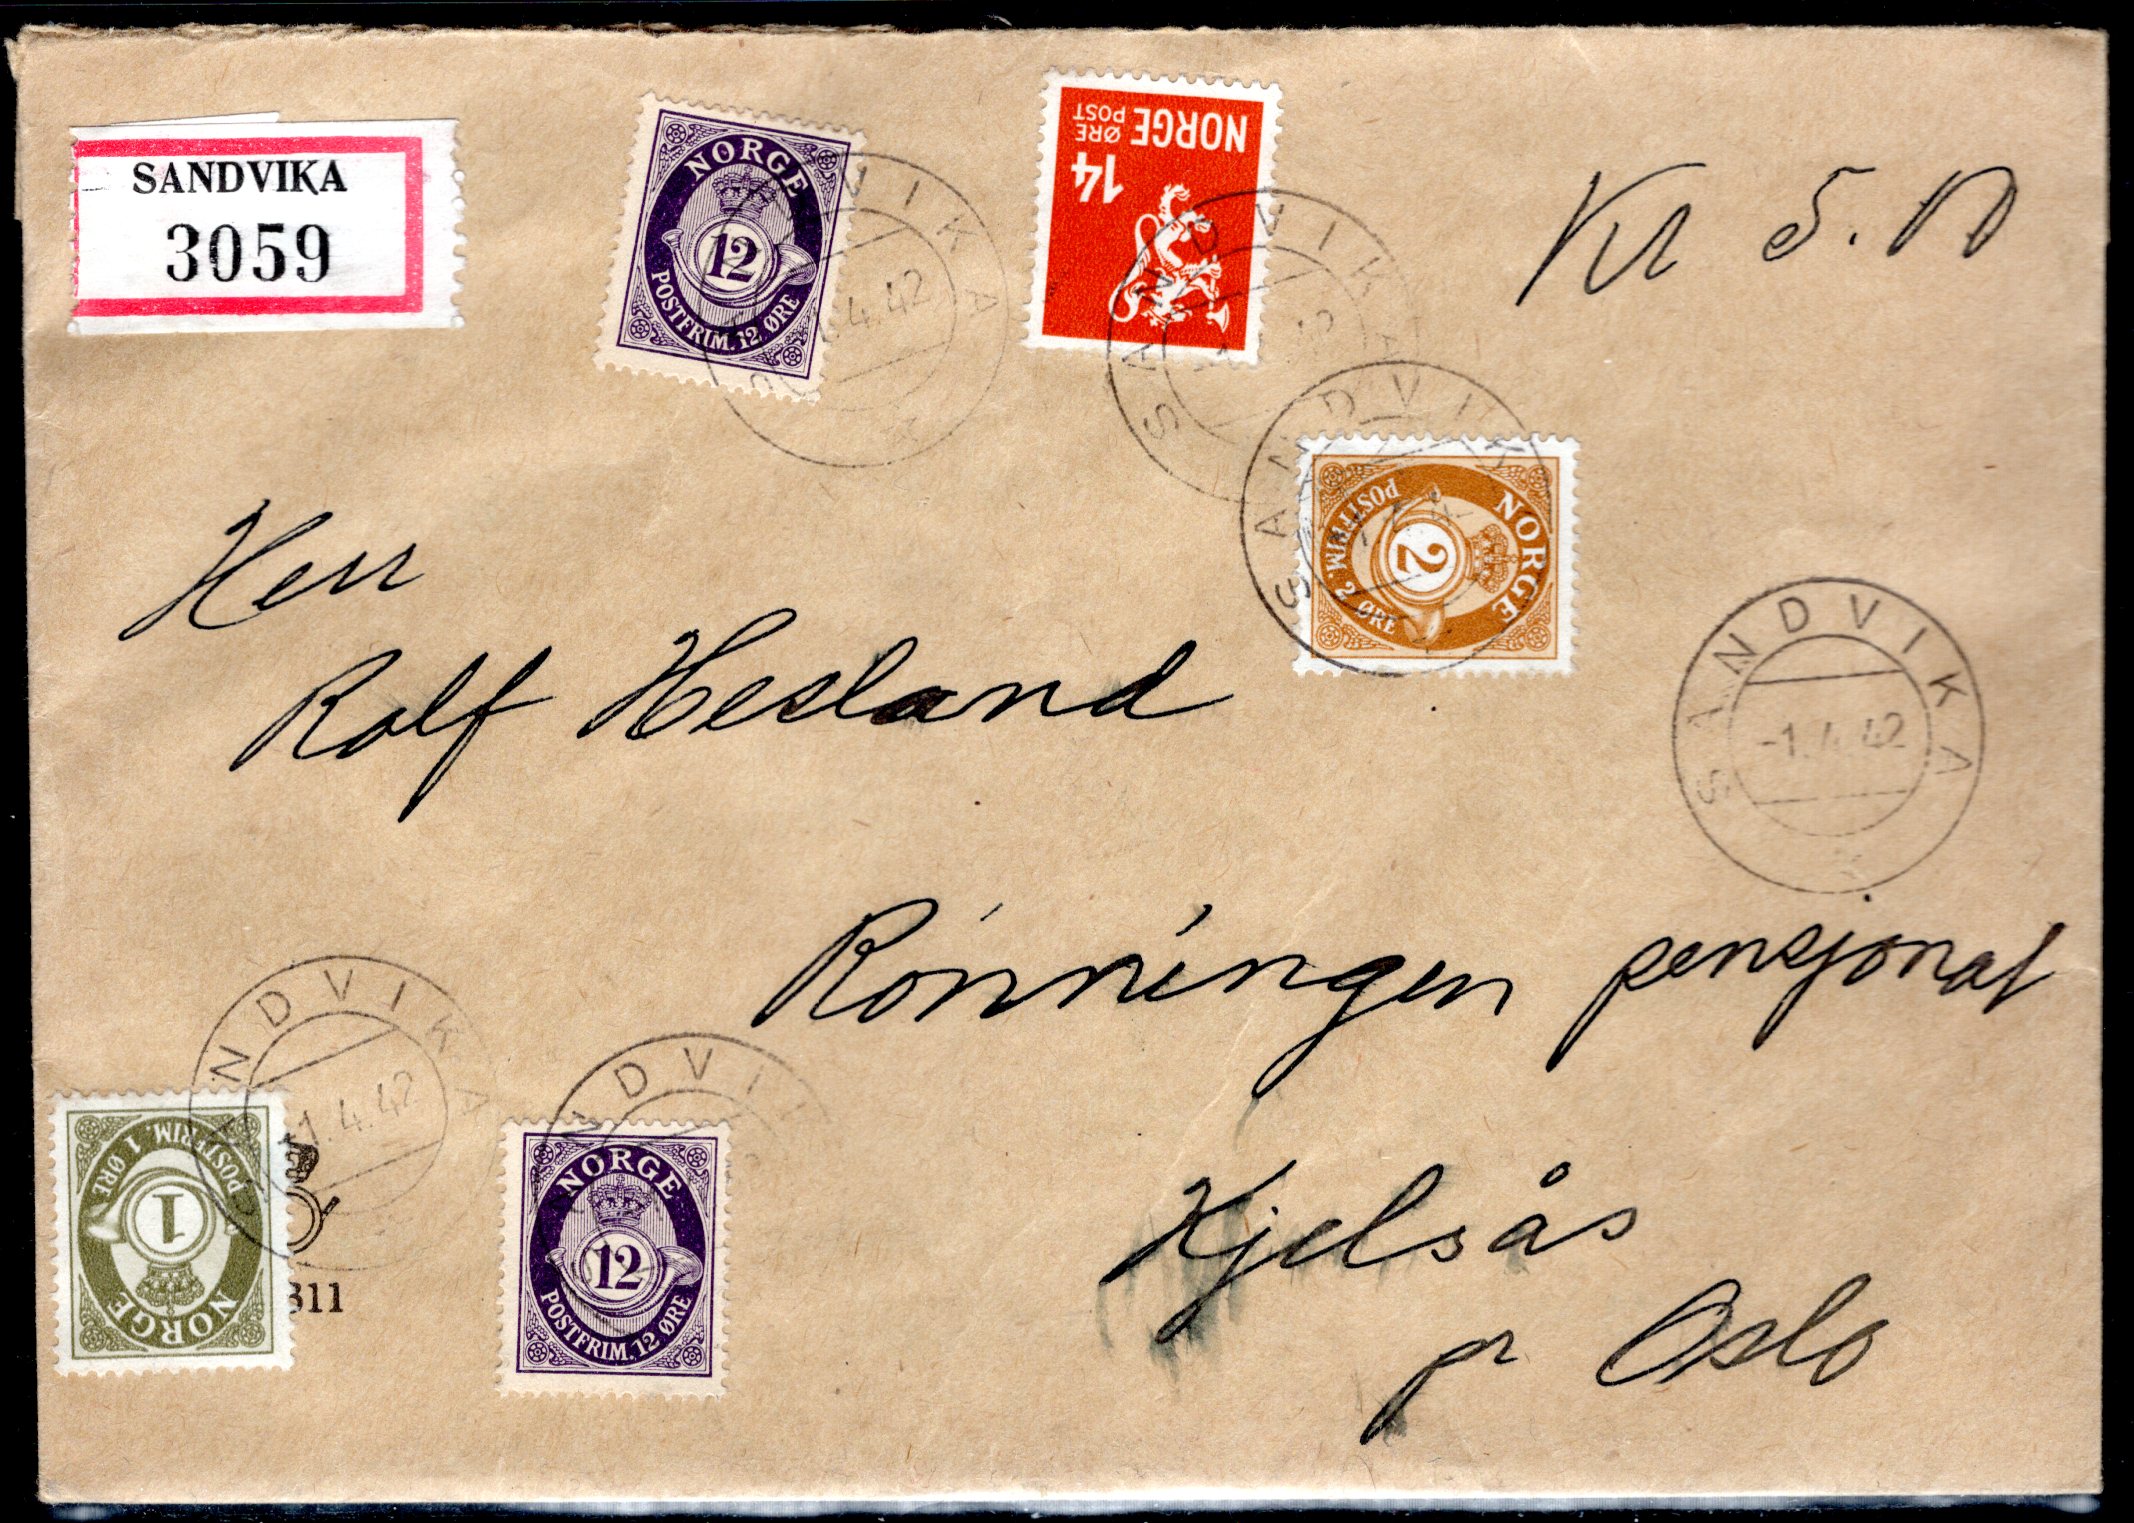 SANDVIKA
3059
NORGE
12
POSTFRIM. 12 ØRE
SANDVIKA
4.42
NORGE
ØRE
POST
14
SANDVIKA
42
Kr 5.
SANDVIK
NORGE
2
POSTFRIM. 2 ØRE
Herr
Rolf Hesland
SANDVIKA
-1.4.42
Rønningen pensjonat
NDVIKA
1.4.42
NORGE
1
POSTFRIM. 1 ØRE
311
NDVIK
NORGE
12
POSTFRIM. 12 ØRE
Kjelsås
pr Oslo